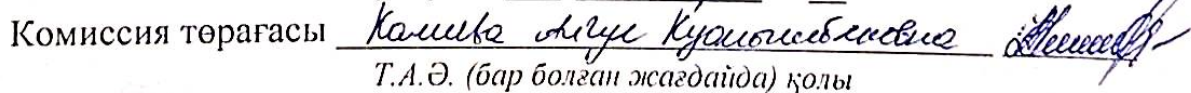 Комиссия төрағасы Калиева Айгуе Куанышбековна
Т.А.Ә. (бар болған жағдайда) қолы